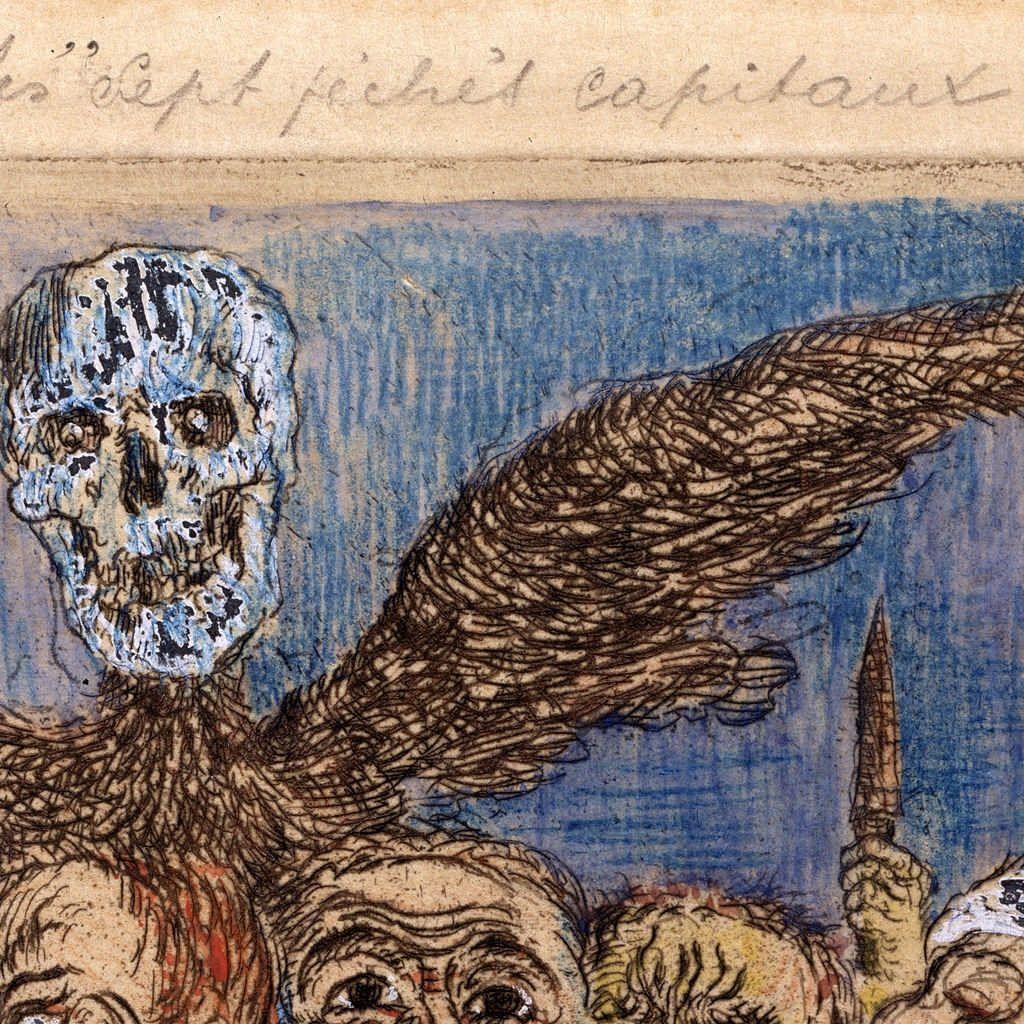 " Sept péchés capitaux